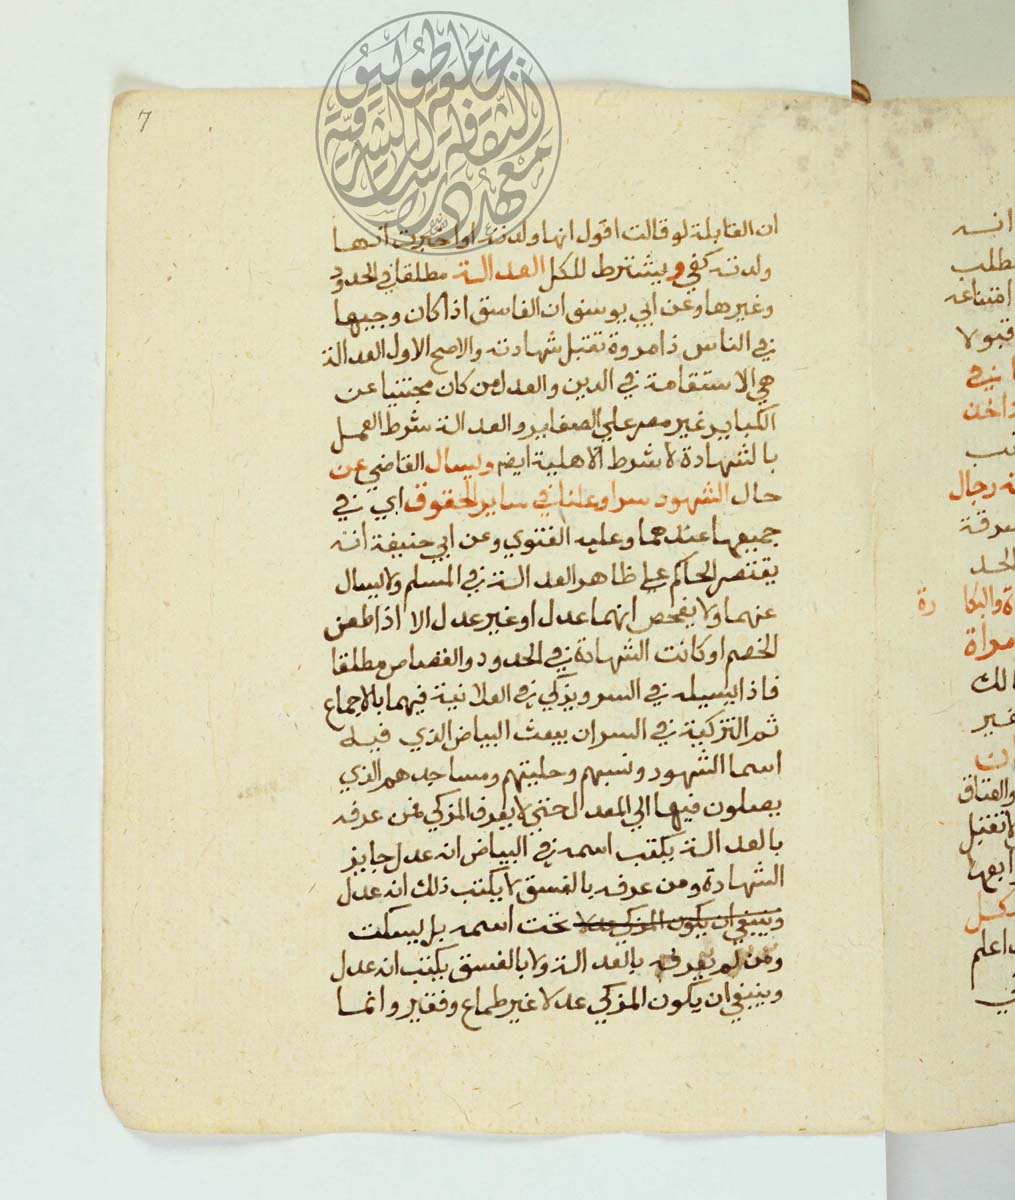 7
ان القابلة لو قالت اقول انها ولدته او اخبرت انها
ولدته كفي ويشترط للكل العدالة مطلقا في الحدود
وغيرها وعن ابي يوسف ان الفاسق اذا كان وجيها
في الناس ذا مروة تقبل شهادته والاصح الاول العدالة
هي الاستقامة في الدين والعدل من كان مجتنبا عن
الكباير غير مصر علي الصغاير والعدالة شرط العمل
بالشهادة لا شرط الاهلية ايضا ويسال القاضي عن
حال الشهود سرا وعلنا في ساير الحقوق اي في
جميعها عندهما وعليه الفتوي وعن ابي حنيفة انه
يقتصر الحاكم علي ظاهر العدالة في المسلم ولا يسال
عنهما ولا يفحص انهما عدل او غير عدل الا اذا طعن
الخصم او كانت الشهادة في الحدود والقصاص مطلقا
فاذا يسيله في السر ويزكي في العلانية فيهما بالاجماع
ثم التزكية في السر ان يبعث البياض الذي فيه
اسما الشهود ونسبهم وحليتهم ومساجدهم الذي
يصلون فيها الي المعدل حتي لا يعرف المزكي فمن عرفه
بالعدالة يكتب اسمه في البياض انه عدل جايز
الشهادة ومن عرفه بالفسق لا يكتب ذلك انه عدل
وينبغي ان يكون المزكي عدلا تحت اسمه بل يسكت
ومن لم يعرفه بالعدالة ولا بالفسق يكتب انه عدل
وينبغي ان يكون المزكي عدلا غير طماع وفقير وانما
انه
مطلب
امتناعه
قبولا
في
رجال
سرقة
الحد
والبكارة
مراة
غير
والعتاق
لا تقبل
اعلم